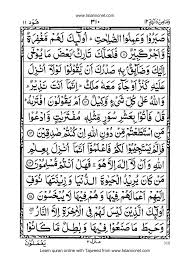 www.islamicnet.com
هُود ١١ ٣١٠ وَمَا مِنْ دَآبَّةٍ ١٢
صَبَرُوْا وَعَمِلُوا الصّٰلِحٰتِ ؕ اُولٰٓئِكَ لَهُمْ مَّغْفِرَةٌ
وَّاَجْرٌ كَبِيْرٌ ۝ فَلَعَلَّكَ تَارِكٌۢ بَعْضَ مَا يُوْحٰٓى
اِلَيْكَ وَضَآئِقٌۢ بِهٖ صَدْرُكَ اَنْ يَّقُوْلُوْا لَوْلَاۤ اُنْزِلَ
عَلَيْهِ كَنْزٌ اَوْ جَآءَ مَعَهٗ مَلَكٌ ؕ اِنَّمَاۤ اَنْتَ نَذِيْرٌ ؕ
وَاللّٰهُ عَلٰى كُلِّ شَيْءٍ وَّكِيْلٌ ۝ اَمْ يَقُوْلُوْنَ افْتَرٰىهُ ؕ
قُلْ فَاْتُوْا بِعَشْرِ سُوَرٍ مِّثْلِهٖ مُفْتَرَيٰتٍ وَّادْعُوْا
مَنِ اسْتَطَعْتُمْ مِّنْ دُوْنِ اللّٰهِ اِنْ كُنْتُمْ صٰدِقِيْنَ ۝
فَاِلَّمْ يَسْتَجِيْبُوْا لَكُمْ فَاعْلَمُوْۤا اَنَّمَاۤ اُنْزِلَ بِعِلْمِ
اللّٰهِ وَاَنْ لَّاۤ اِلٰهَ اِلَّا هُوَ ۚ فَهَلْ اَنْتُمْ مُّسْلِمُوْنَ ۝
مَنْ كَانَ يُرِيْدُ الْحَيٰوةَ الدُّنْيَا وَزِيْنَتَهَا نُوَفِّ
اِلَيْهِمْ اَعْمَالَهُمْ فِيْهَا وَهُمْ فِيْهَا لَا يُبْخَسُوْنَ ۝
اُولٰٓئِكَ الَّذِيْنَ لَيْسَ لَهُمْ فِى الْاٰخِرَةِ اِلَّا النَّارُ ۖ
وَحَبِطَ مَا صَنَعُوْا فِيْهَا وَبٰطِلٌ مَّا كَانُوْا
يَعْمَلُوْنَ
Learn quran online with Tajweed from www.islamicnet.com